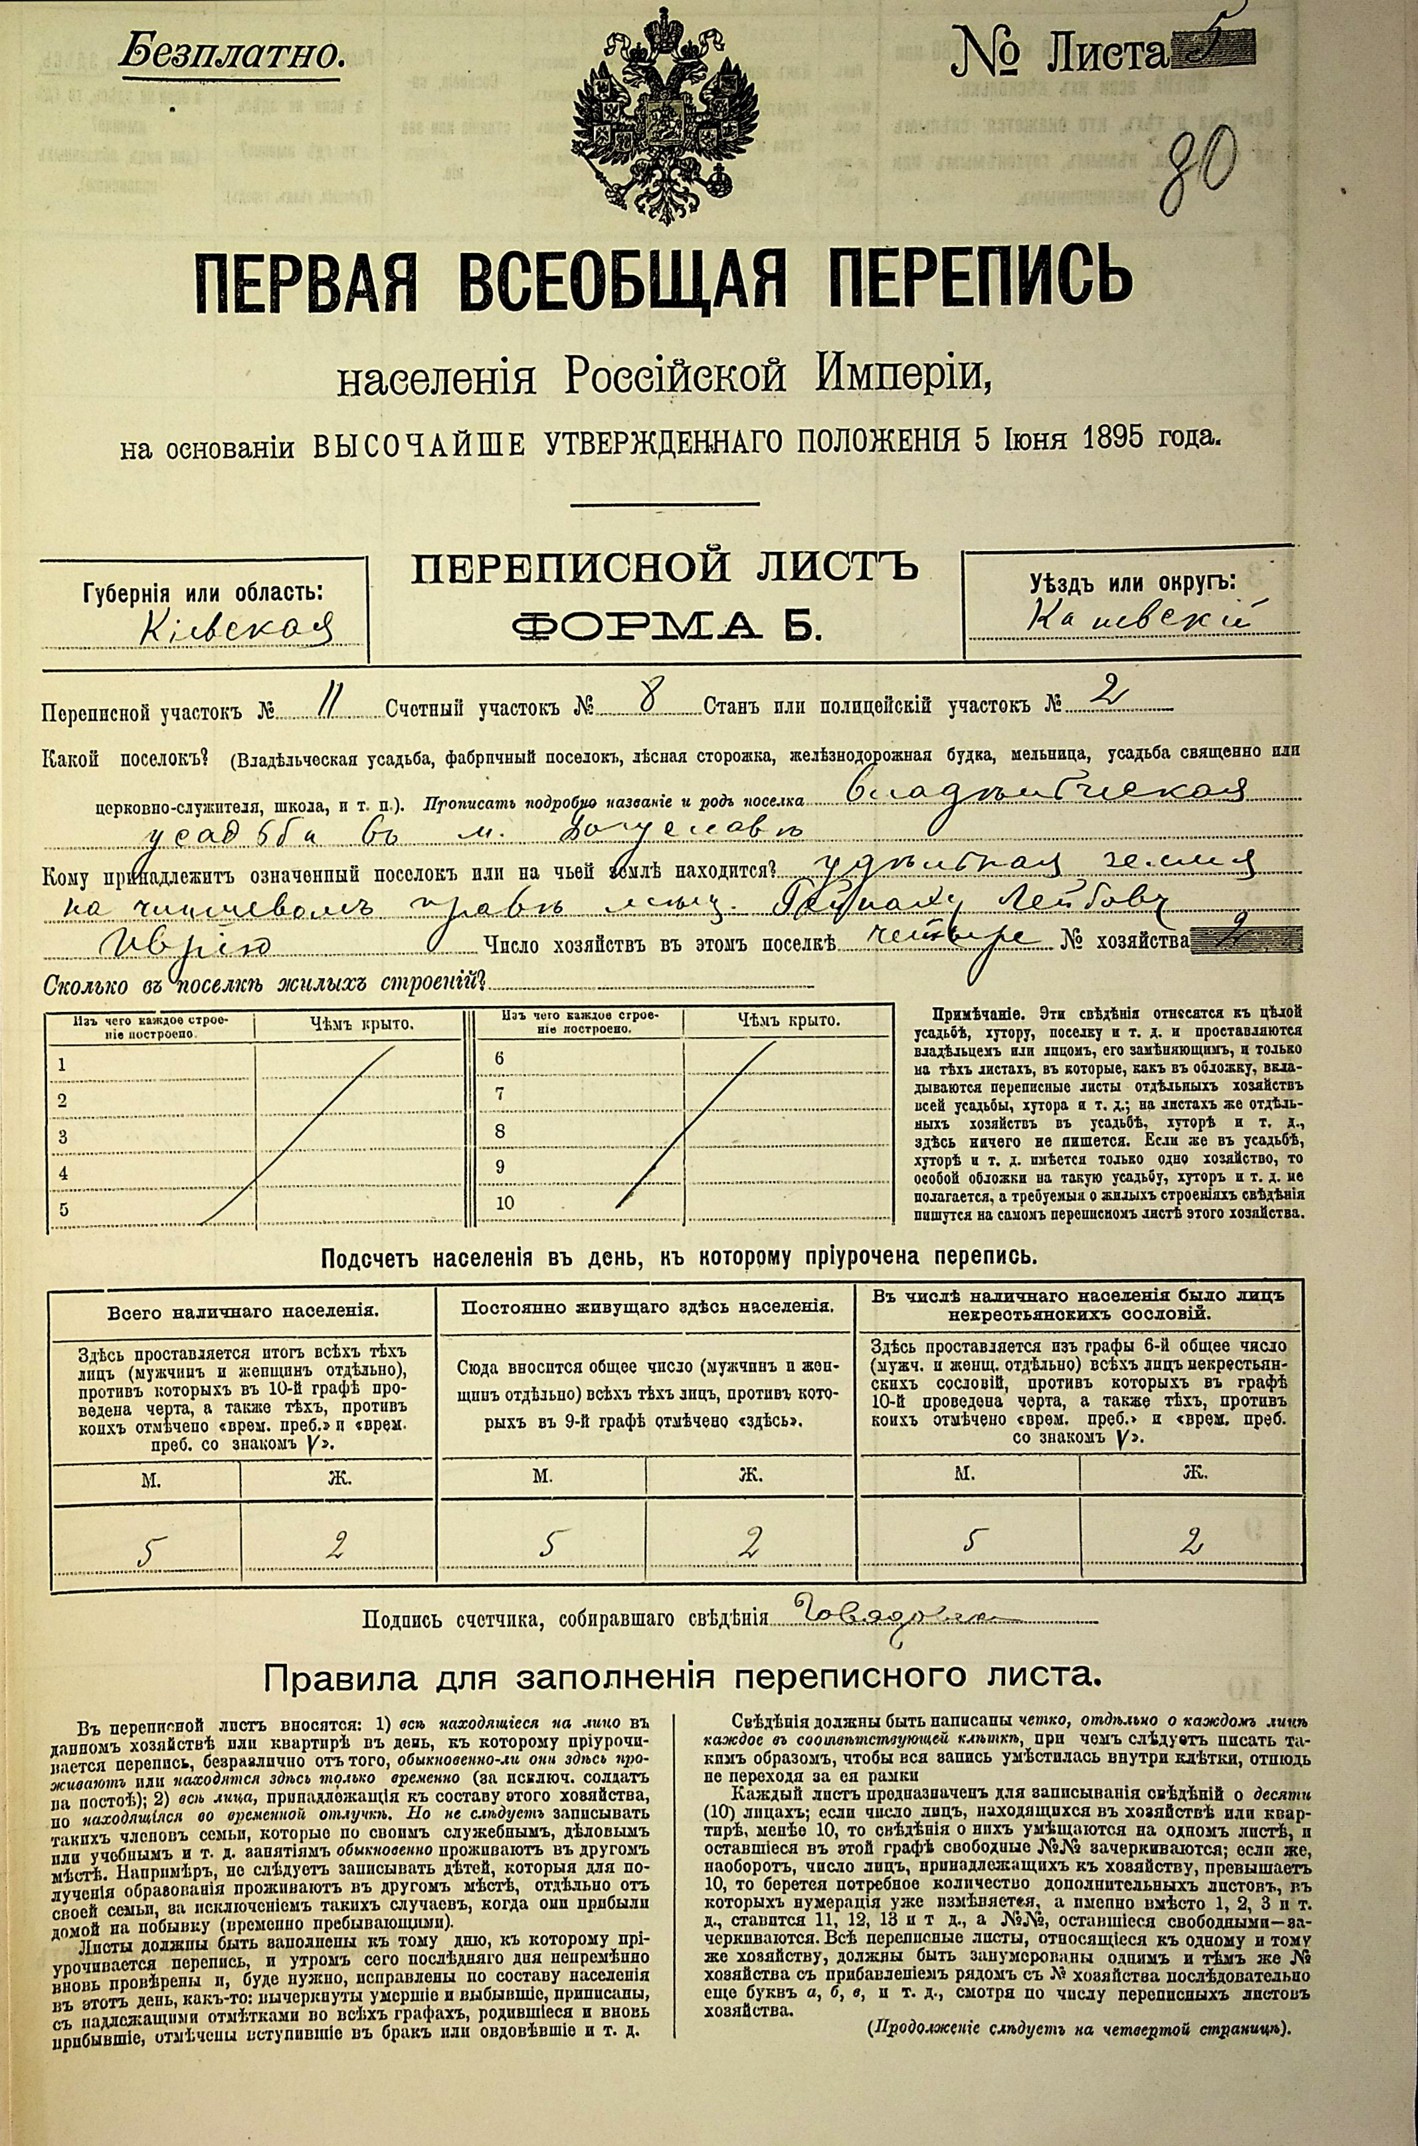 Безплатно.
№ Листа 5
80
ПЕРВАЯ ВСЕОБЩАЯ ПЕРЕПИСЬ
населенія Россійской Имперіи,
на основаніи ВЫСОЧАЙШЕ УТВЕРЖДЕННАГО ПОЛОЖЕНІЯ 5 Іюня 1895 года.
ПЕРЕПИСНОЙ ЛИСТЪ
ФОРМА Б.
Губернія или область:
Кіевская
Уѣздъ или округъ:
Каневскій
Переписной участокъ № 11 Счетный участокъ № 8 Станъ или полицейскій участокъ № 2
Какой поселокъ? (Владѣльческая усадьба, фабричный поселокъ, лѣсная сторожка, желѣзнодорожная будка, мельница, усадьба священно или
церковно-служителя, школа, и т. п.). Прописать подробно названіе и родъ поселка владѣльческая
усадьба въ м. Богуславѣ
Кому принадлежитъ означенный поселокъ или на чьей землѣ находится? удѣльная земля
на чиншевомъ правѣ мѣщ. Лейбову
Число хозяйствъ въ этомъ поселкѣ четыре № хозяйства 2
Сколько въ поселкѣ жилыхъ строеній?
Изъ чего каждое строе-
ніе построено.
Чѣмъ крыто.
Изъ чего каждое строе-
ніе построено.
Чѣмъ крыто.
1
2
3
4
5
6
7
8
9
10
Примѣчаніе. Эти свѣдѣнія относятся къ цѣлой
усадьбѣ, хутору, поселку и т. д. и проставляются
владѣльцемъ или лицомъ, его замѣняющимъ, и только
на тѣхъ листахъ, въ которые, какъ въ обложку, вкла-
дываются переписные листы отдѣльныхъ хозяйствъ
всей усадьбы, хутора и т. д.; на листахъ же отдѣль-
ныхъ хозяйствъ въ усадьбѣ, хуторѣ и т. д.,
здѣсь ничего не пишется. Если же въ усадьбѣ,
хуторѣ и т. д. имѣется только одно хозяйство, то
особой обложки на такую усадьбу, хуторъ и т. д. не
полагается, а требуемыя о жилыхъ строеніяхъ свѣдѣнія
пишутся на самомъ переписномъ листѣ этого хозяйства.
Подсчетъ населенія въ день, къ которому пріурочена перепись.
Всего наличнаго населенія.
Здѣсь проставляется итогъ всѣхъ тѣхъ
лицъ (мужчинъ и женщинъ отдѣльно),
противъ которыхъ въ 10-й графѣ про-
ведена черта, а также тѣхъ, противъ
коихъ отмѣчено «врем. преб.» и «врем.
преб. со знакомъ V».
М. Ж.
5 2
Постоянно живущаго здѣсь населенія.
Сюда вносится общее число (мужчинъ и жен-
щинъ отдѣльно) всѣхъ тѣхъ лицъ, противъ кото-
рыхъ въ 9-й графѣ отмѣчено «здѣсь».
М. Ж.
5 2
Въ числѣ наличнаго населенія было лицъ
некрестьянскихъ сословій.
Здѣсь проставляется изъ графы 6-й общее число
(мужч. и женщ. отдѣльно) всѣхъ лицъ некрестьян-
скихъ сословій, противъ которыхъ въ графѣ
10-й проведена черта, а также тѣхъ, противъ
коихъ отмѣчено «врем. преб.» и «врем. преб.
со знакомъ V».
М. Ж.
5 2
Подпись счетчика, собиравшаго свѣдѣнія
Правила для заполненія переписного листа.
Въ переписной листъ вносятся: 1) всѣ находящіеся на лицо въ
данномъ хозяйствѣ или квартирѣ въ день, къ которому пріурочи-
вается перепись, безразлично отъ того, обыкновенно-ли они здѣсь про-
живаютъ или находятся здѣсь только временно (за исключ. солдатъ
на постоѣ); 2) всѣ лица, принадлежащія къ составу этого хозяйства,
но находящіяся во временной отлучкѣ. Но не слѣдуетъ записывать
такихъ членовъ семьи, которые по своимъ служебнымъ, дѣловымъ
или учебнымъ и т. д. занятіямъ обыкновенно проживаютъ въ другомъ
мѣстѣ. Напримѣръ, не слѣдуетъ записывать дѣтей, которыя для по-
лученія образованія проживаютъ въ другомъ мѣстѣ, отдѣльно отъ
своей семьи, за исключеніемъ такихъ случаевъ, когда они прибыли
домой на побывку (временно пребывающими).
Листы должны быть заполнены къ тому дню, къ которому прі-
урочивается перепись, и утромъ сего послѣдняго дня непремѣнно
вновь провѣрены и, буде нужно, исправлены по составу населенія
въ этотъ день, какъ-то: вычеркнуты умершіе и выбывшіе, приписаны,
съ надлежащими отмѣтками во всѣхъ графахъ, родившіеся и вновь
прибывшіе, отмѣчены вступившіе въ бракъ или овдовѣвшіе и т. д.
Свѣдѣнія должны быть написаны четко, отдѣльно о каждомъ лицѣ
каждое въ соотвѣтствующей клѣткѣ, при чемъ слѣдуетъ писать та-
кимъ образомъ, чтобы вся запись умѣстилась внутри клѣтки, отнюдь
не переходя за ея рамки
Каждый листъ предназначенъ для записыванія свѣдѣній о десяти
(10) лицахъ; если число лицъ, находящихся въ хозяйствѣ или квар-
тирѣ, менѣе 10, то свѣдѣнія о нихъ умѣщаются на одномъ листѣ, и
оставшіеся въ этой графѣ свободные №№ зачеркиваются; если же,
наоборотъ, число лицъ, принадлежащихъ къ хозяйству, превышаетъ
10, то берется потребное количество дополнительныхъ листовъ, въ
которыхъ нумерація уже измѣняется, а именно вмѣсто 1, 2, 3 и т.
д., ставится 11, 12, 13 и т д., а №№, оставшіеся свободными—за-
черкиваются. Всѣ переписные листы, относящіеся къ одному и тому
же хозяйству, должны быть занумерованы однимъ и тѣмъ же №
хозяйства съ прибавленіемъ рядомъ съ № хозяйства послѣдовательно
еще буквъ а, б, в, и т. д., смотря по числу переписныхъ листовъ
хозяйства.
(Продолженіе слѣдуетъ на четвертой страницѣ).